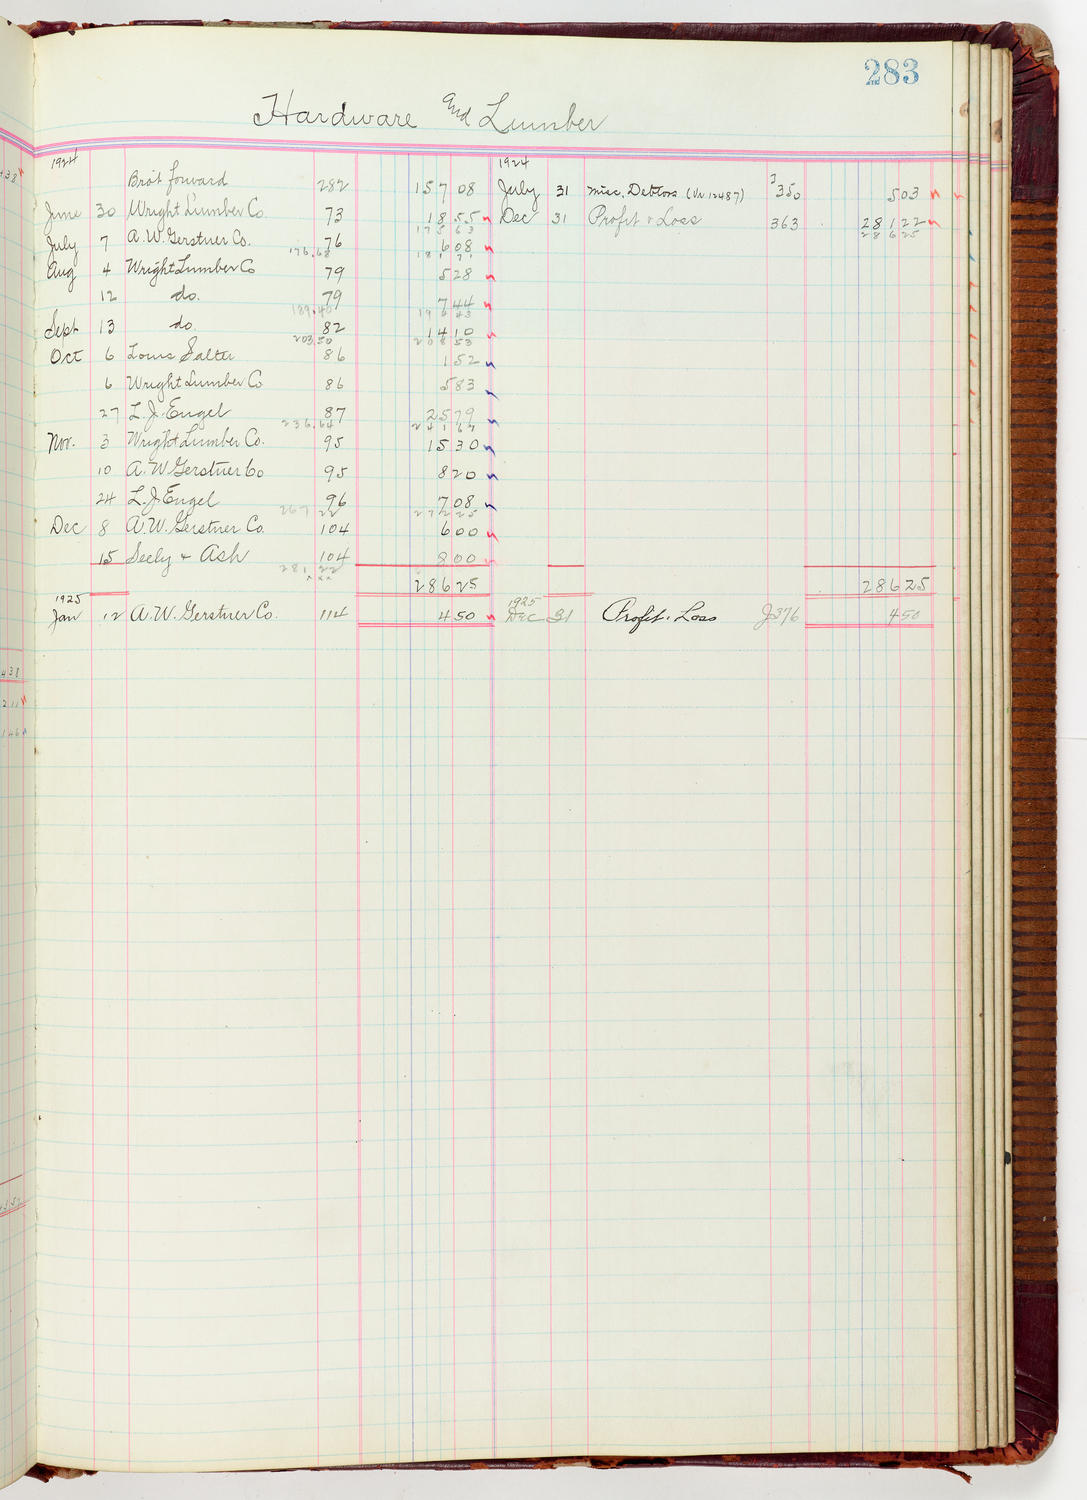 283
Hardware and Lumber
1924 1924
Bro't forward 282 157 08 July 31 misc. Debtors (Vr 12487) J 350 5 03
June 30 Wright Lumber Co. 73 18 55 Dec 31 Profit & Loss 363 281 22
175 63 286 25
July 7 A. W. Gerstner Co. 76 6 08
176.68 181 71
Aug 4 Wright Lumber Co 79 5 28
12 do. 79 7 44
189.40 194 43
Sept 13 do. 82 14 10
203.50 208 53
Oct 6 Louis Salter 86 1 52
6 Wright Lumber Co 86 5 83
27 L. J. Engel 87 25 79
236.64 241 67
Nov. 3 Wright Lumber Co. 95 15 30
10 A. W Gerstner Co 95 8 20
24 L. J. Engel 96 7 08
267 22 272 25
Dec 8 A. W. Gerstner Co. 104 6 00
15 Seely & Ash 104 8 00
281 22
286 25 286 25
1925 1925
Jan 12 A. W. Gerstner Co. 114 4 50 Dec 31 Profit & Loss J376 4 50